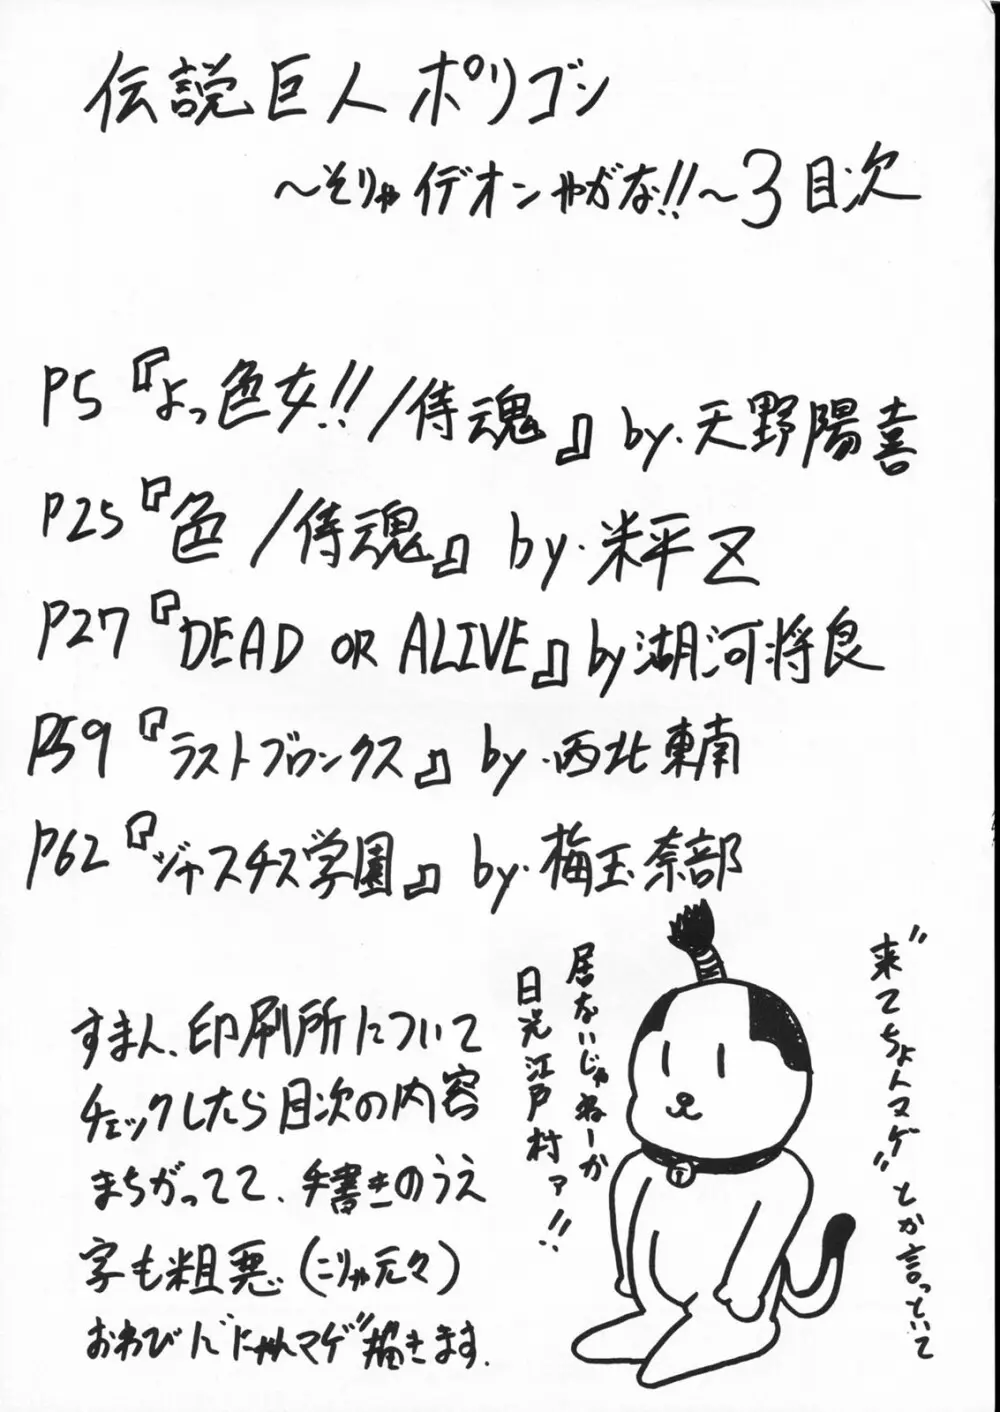 伝説巨人ポリゴン
～そりゃイデオンやがな!!～3目次
P5『よっ色女!!/侍魂』by.天野陽喜
P25『色/侍魂』by.米平乙
P27『DEAD OR ALIVE』by湖河将良
P59『ラストブロンクス』by.西北東南
P62『ジャスチス学園』by.梅玉奈部
すまん、印刷所について
チェックしたら目次の内容
まちがってて、手書きのうえ
字も粗悪(こりゃ元々)
おわびに"にゃんマゲ"描きます.
"来てちょんマゲ"とか言っといて
居ないじゃねーか
日光江戸村ァ!!